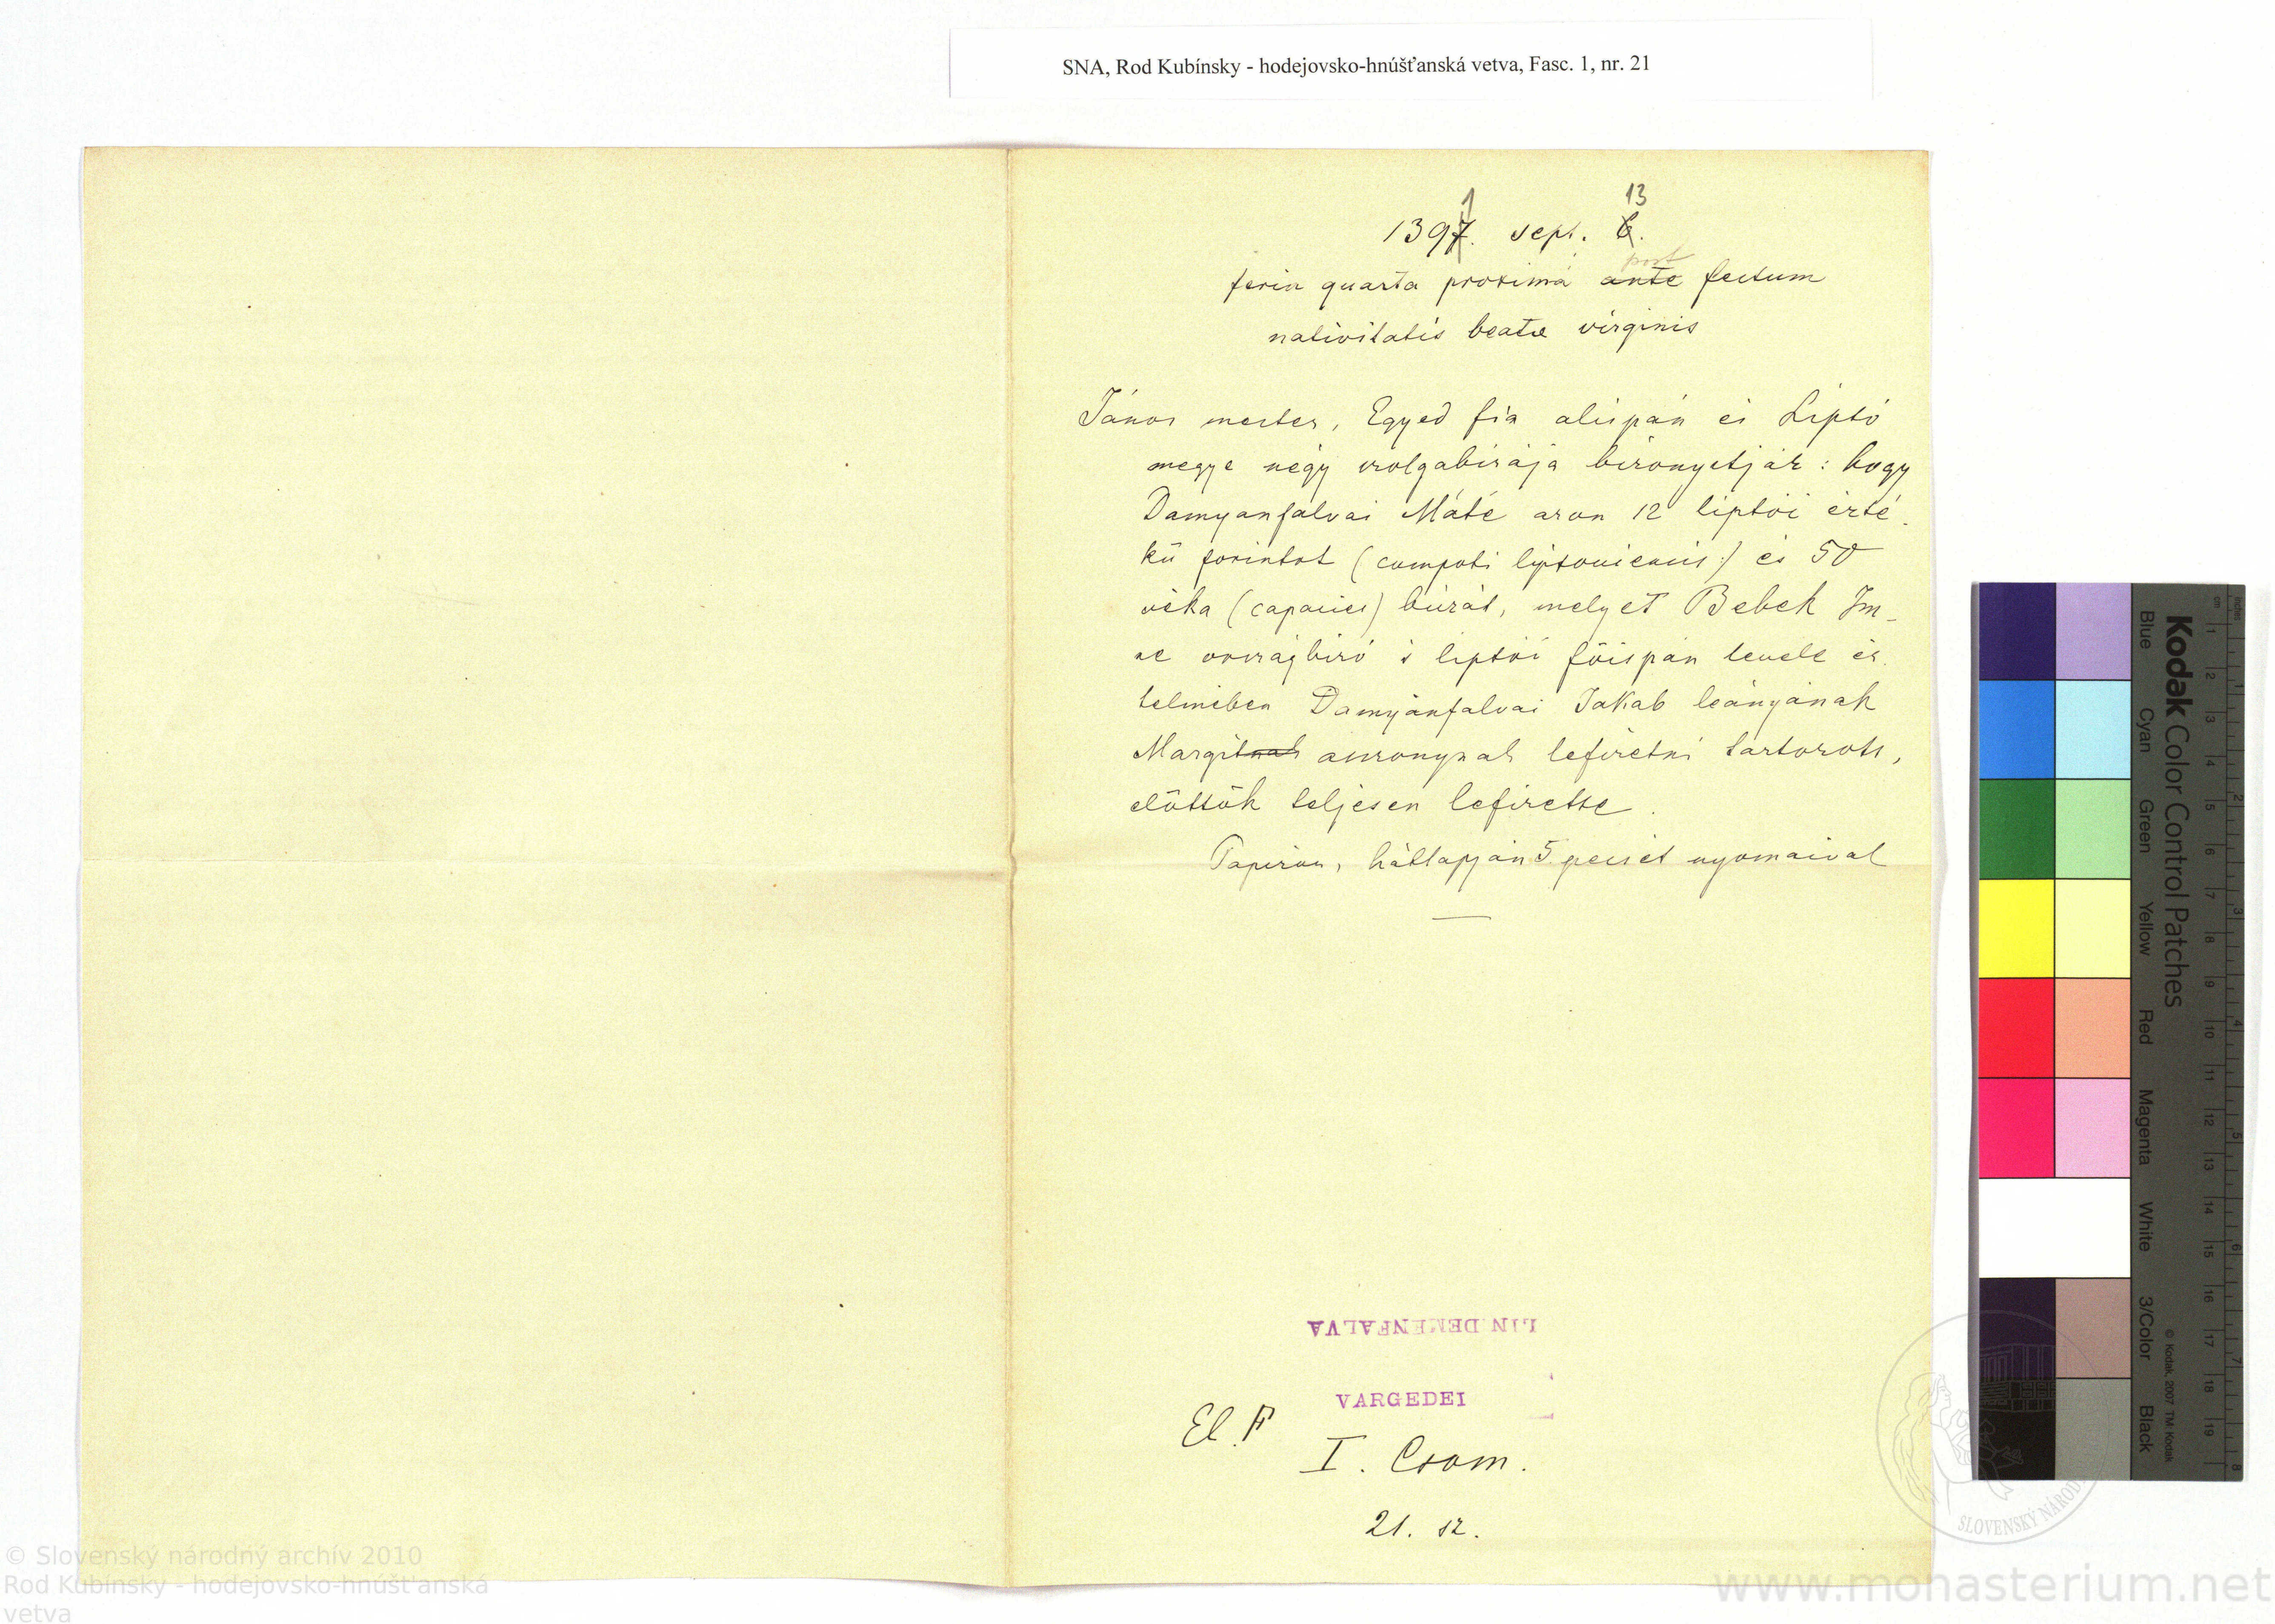 SNA, Rod Kubínsky - hodejovsko-hnúšťanská vetva, Fasc. 1, nr. 21
1
13
1397. sept. 6.
post
feria quarta proxima ante festum
nativitatis beatae virginis
János mester, Egyed fia alispán és Liptó
megye négy szolgabirája bizonyítják: hogy
Damyanfalvai Máté azon 12 liptói érté-
kü forintot (compoti liptoviensis) és 50
véka búzát, melyet Bebek Im-
re országbiró s liptói főispán levele ér-
telmében Damyánfalvai Jakab leányának
Margitnak asszonynak lefizetni tartozott,
előttök teljesen lefizette.
Papiron, hátlapján 5 pecsét nyomaival
LIN DEMENFALVA
VARGEDEI
El. F
I. Csom.
21. sz.
Kodak Color Control Patches
Blue Cyan Green Yellow Red Magenta White 3/Color Black
© Kodak, 2007 TM Kodak
SLOVENSKÝ NÁROD
© Slovenský národný archív 2010
Rod Kubínsky - hodejovsko-hnúšťanská
vetva
www.monasterium.net